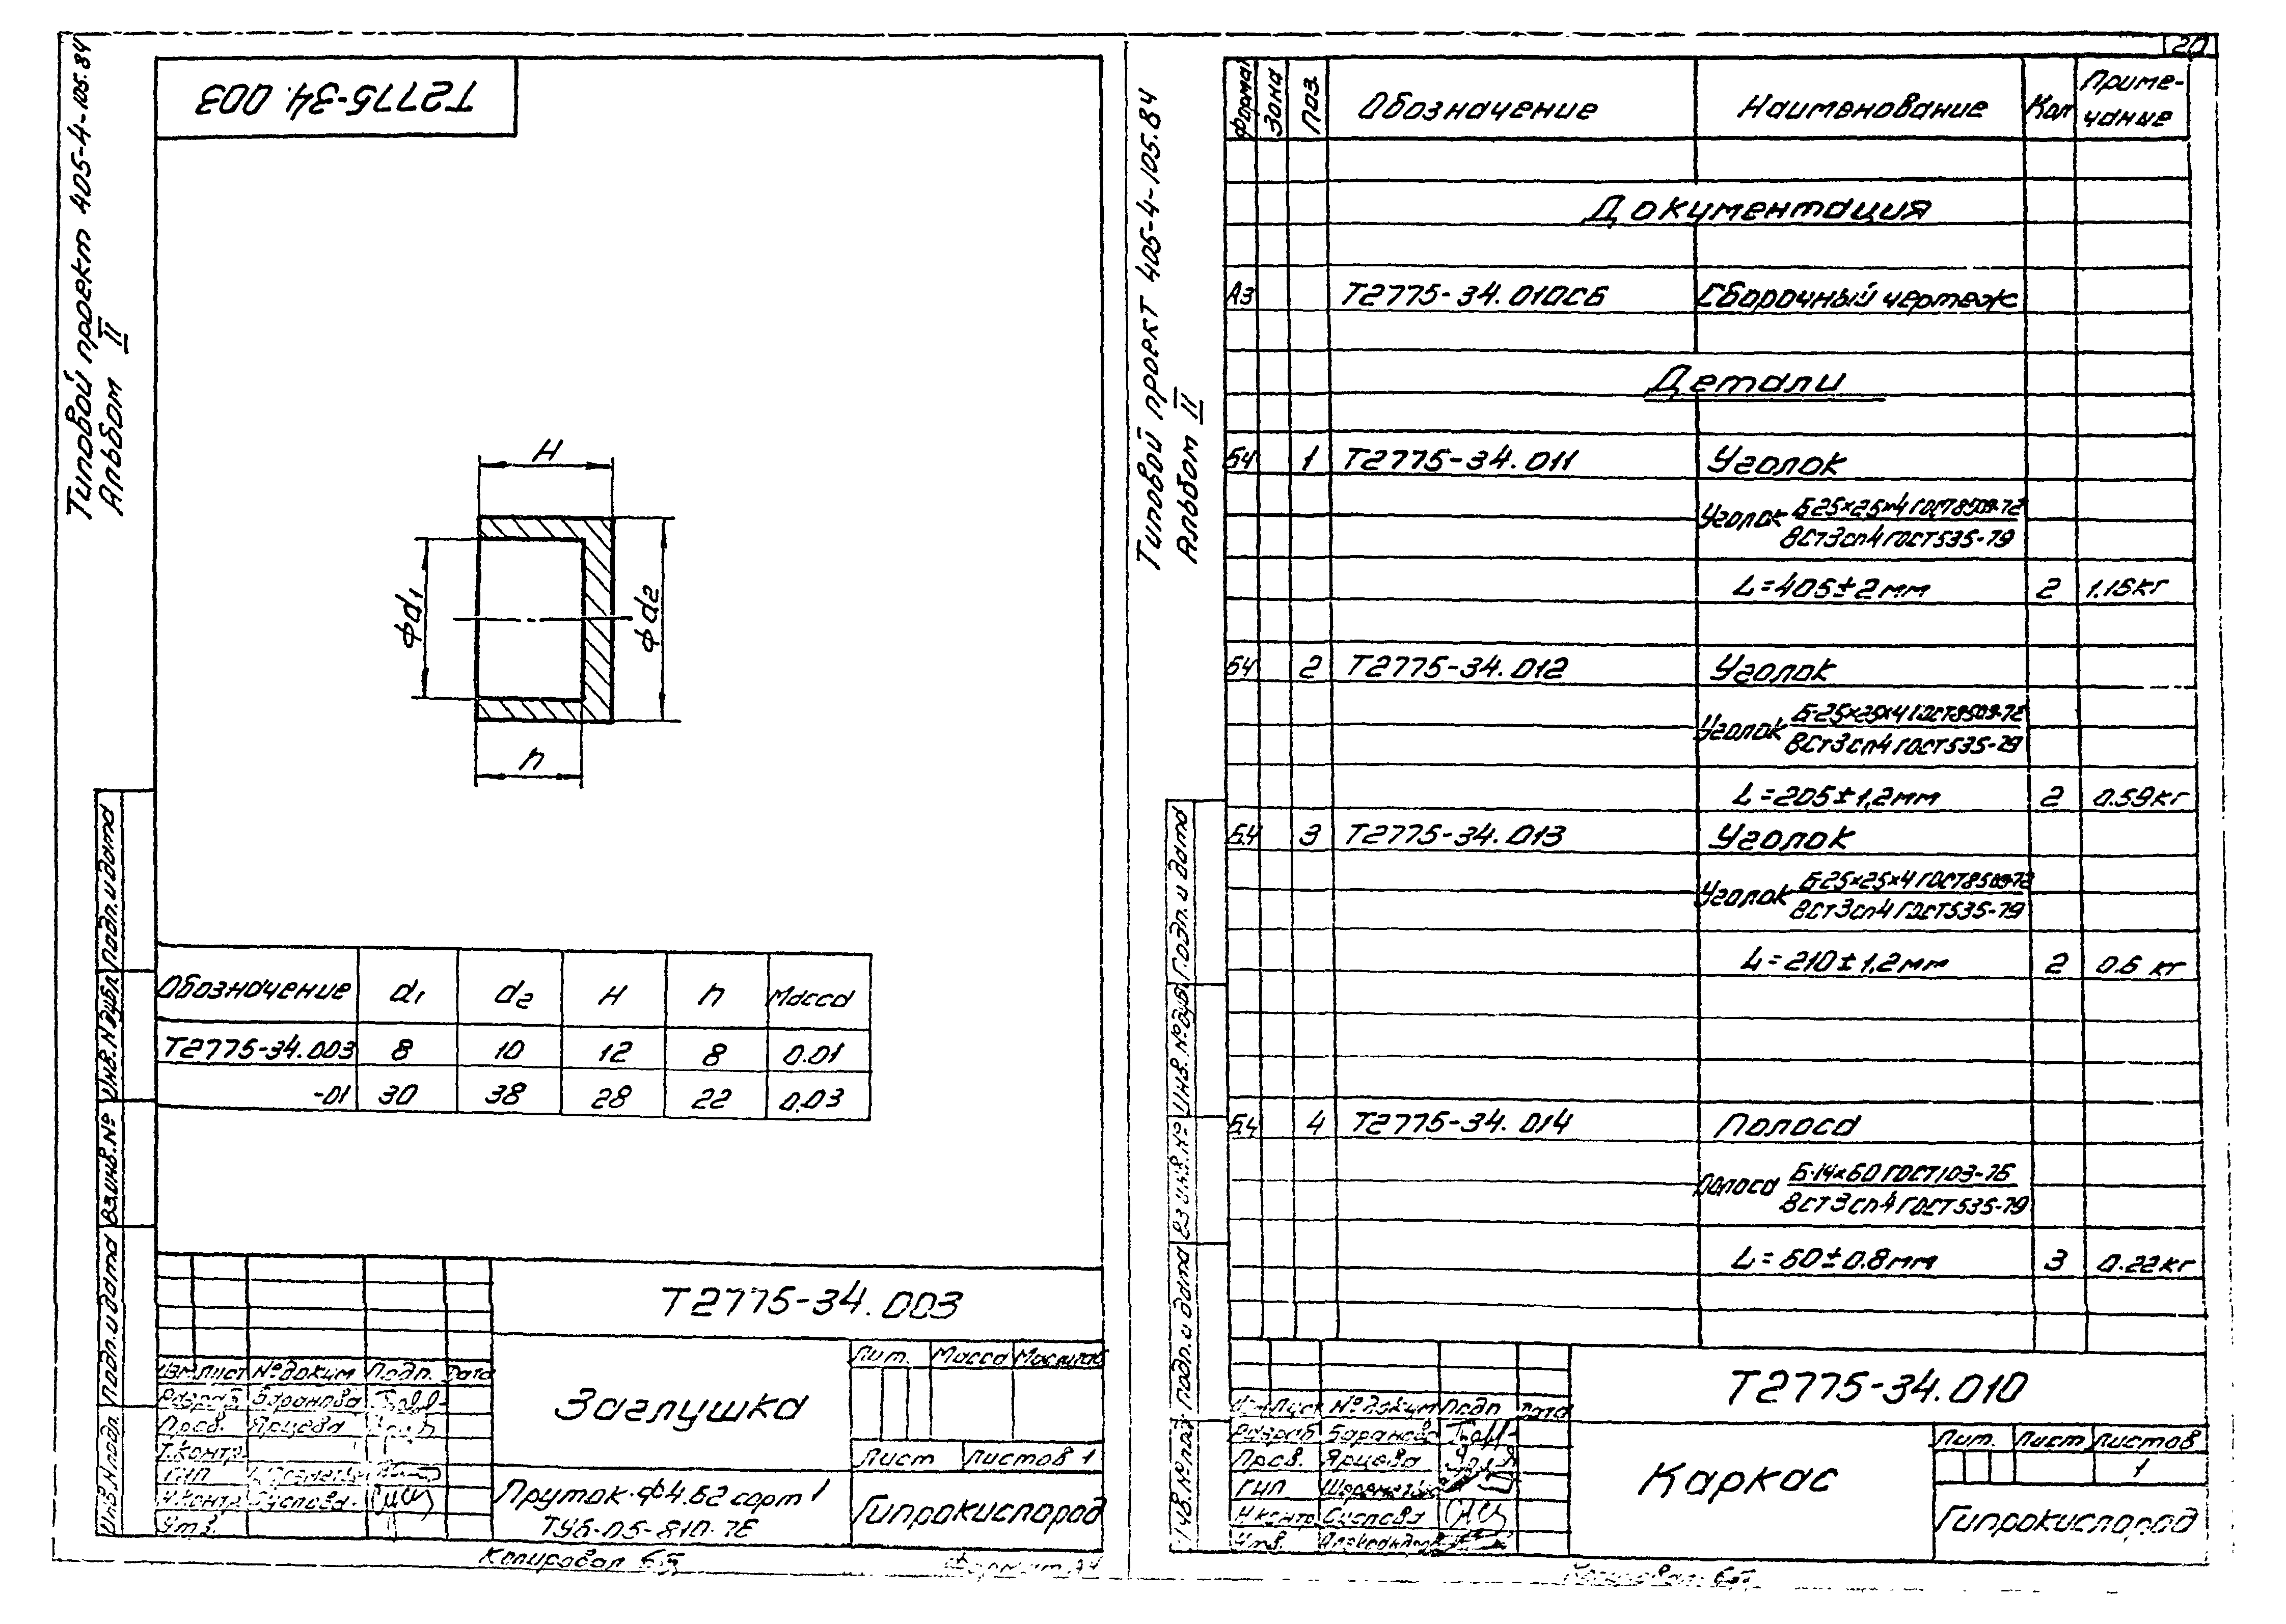 20
Типовой проект 405-4-105.84
Альбом II
Т2775-34.003
H
ϕd1
ϕd2
h
Обозначение d1 d2 H h Масса
Т2775-34.003 8 10 12 8 0.01
-01 30 38 28 22 0.03
Инв.№подл. Подп.и дата Вз.инв.№ Инв.№дубл. Подп.и дата
Т2775-34.003
Изм Лист №докум Подп. Дата
Разраб Баранова
Пров. Ярцева
Т.контр.
ГИП
Н.контр Суслова
Утв.
Заглушка
Лит. Масса Масштаб
Лист Листов 1
Пруток ϕ4.62 сорт 1
Гипрокислород
Копировал
Формат А4
Типовой проект 405-4-105.84
Альбом II
Формат Зона Поз. Обозначение Наименование Кол Приме-
чание
Документация
А3 Т2775-34.010СБ Сборочный чертеж
Детали
Б4 1 Т2775-34.011 Уголок
Уголок Б-25×25×4 ГОСТ8509-72
ВСт3сп4 ГОСТ535-79
L=405±2мм 2 1.15кг
Б4 2 Т2775-34.012 Уголок
Уголок Б-25×25×4 ГОСТ8509-72
ВСт3сп4 ГОСТ535-79
L=205±1,2мм 2 0.59кг
Б4 3 Т2775-34.013 Уголок
Уголок Б-25×25×4 ГОСТ8509-72
ВСт3сп4 ГОСТ535-79
L=210±1,2мм 2 0.6 кг
Б4 4 Т2775-34.014 Полоса
Полоса Б-14×60 ГОСТ103-76
ВСт3сп4 ГОСТ535-79
L=60±0.8мм 3 0.22кг
Инв.№подл Подп.и дата Вз инв.№ Инв.№дубл Подп. и дата
Т2775-34.010
Изм Лист №докум Подп Дата
Разраб Баранова
Пров. Ярцева
ГИП
Н контр Суслова
Утв.
Каркас
Лит. Лист Листов
1
Гипрокислород
Копировал